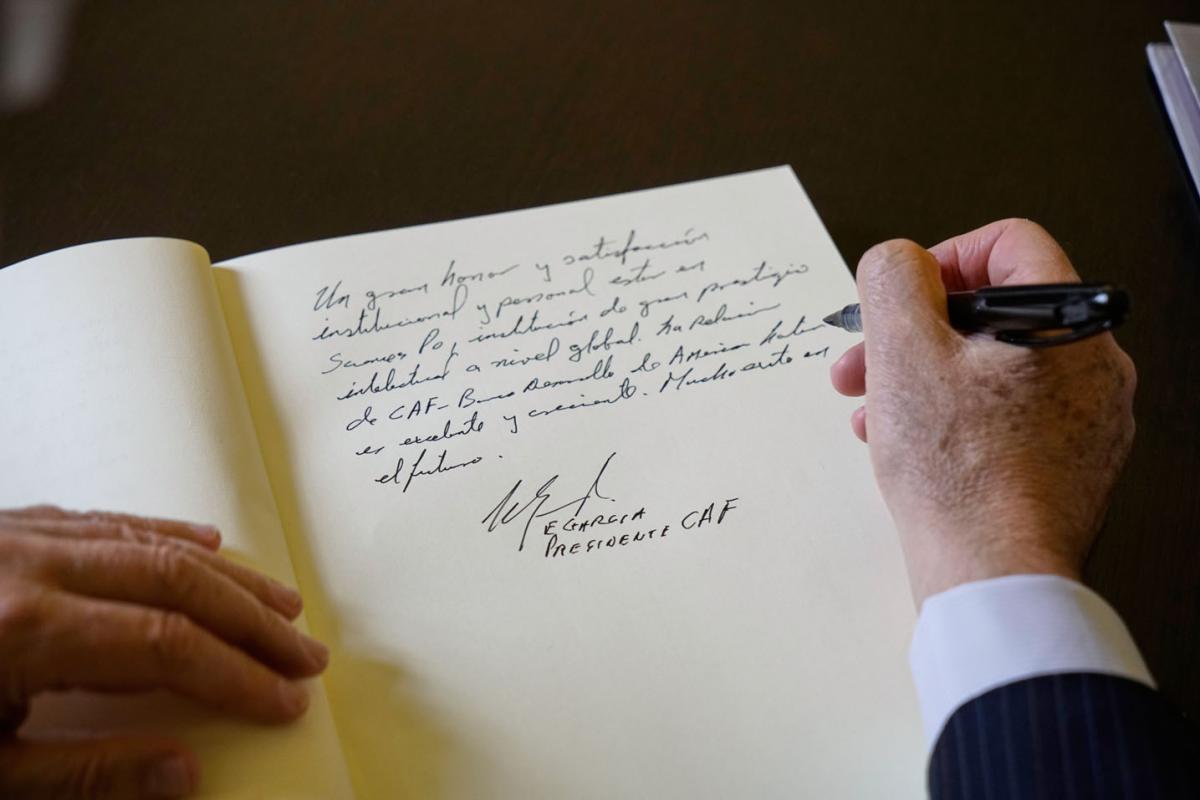 Un gran honor y satisfacción
institucional y personal estar en
Sciences Po, institución de gran prestigio
intelectual a nivel global. La relación
de CAF-Banco Desarrollo de América Latina
es excelente y creciente. Mucho éxito en
el futuro.
E GARCIA
PRESIDENTE CAF